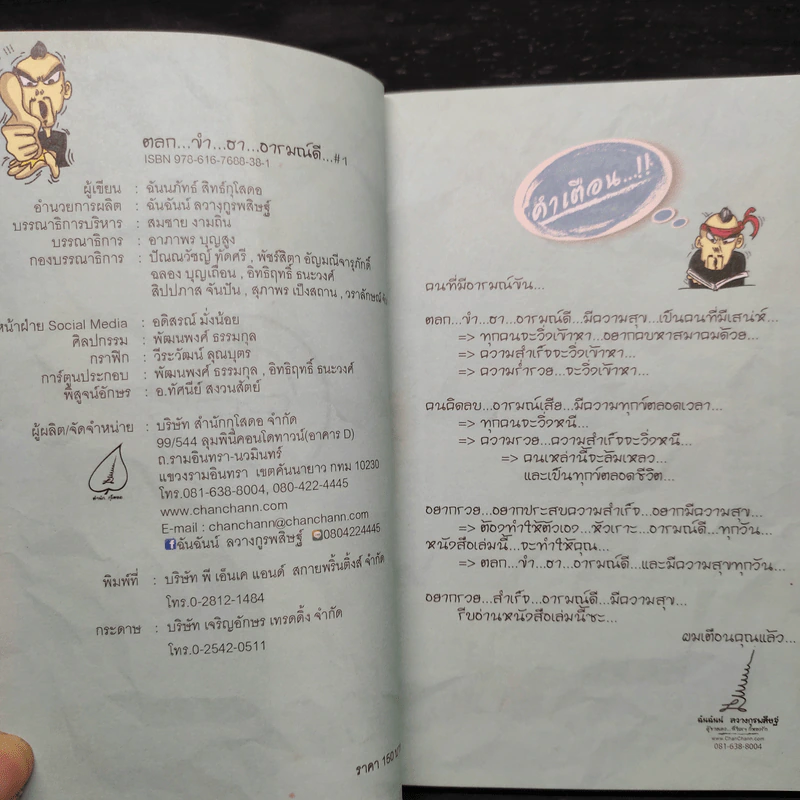 ตลก...ขำ...ฮา...อารมณ์ดี...#1
ISBN 978-616-7688-38-1
ผู้เขียน : ฉันนภัทธ์ สิทธ์กุโสดอ
อำนวยการผลิต : ฉันฉันน์ ลวางกูรพสิษฐ์
บรรณาธิการบริหาร : สมชาย งามถิ่น
บรรณาธิการ : อาภาพร บุญสูง
กองบรรณาธิการ : ปัณณวัชญ์ ทัดศรี , พัชร์สิตา อัญมณีจารุภักดิ์
ฉลอง บุญเถื่อน , อิทธิฤทธิ์ ธนะวงศ์
สิปปภาส จันปัน , สุภาพร เป็งสถาน , วราลักษณ์
หน้าฝ่าย Social Media : อดิสรณ์ มั่งน้อย
ศิลปกรรม : พัฒนพงศ์ ธรรมกุล
กราฟิก : วีระวัฒน์ ลุณบุตร
การ์ตูนประกอบ : พัฒนพงศ์ ธรรมกุล , อิทธิฤทธิ์ ธนะวงศ์
พิสูจน์อักษร : อ.ทัศนีย์ สงวนสัตย์
ผู้ผลิต/จัดจำหน่าย : บริษัท สำนักกุโสดอ จำกัด
99/544 ลุมพินีคอนโดทาวน์(อาคาร D)
ถ.รามอินทรา-นวมินทร์
แขวงรามอินทรา เขตคันนายาว กทม 10230
โทร.081-638-8004, 080-422-4445
www.chanchann.com
E-mail : chanchann@chanchann.com
ฉันฉันน์ ลวางกูรพสิษฐ์ 0804224445
พิมพ์ที่ : บริษัท พี เอ็นเค แอนด์ สกายพริ้นติ้งส์ จำกัด
โทร.0-2812-1484
กระดาษ : บริษัท เจริญอักษร เทรดดิ้ง จำกัด
โทร.0-2542-0511
ราคา 150
คำเตือน...!!
คนที่มีอารมณ์ขัน...
ตลก...ขำ...ฮา...อารมณ์ดี...มีความสุข...เป็นคนที่มีเสน่ห์...
=> ทุกคนจะวิ่งเข้าหา...อยากคบหาสมาคมด้วย...
=> ความสำเร็จจะวิ่งเข้าหา...
=> ความร่ำรวย...จะวิ่งเข้าหา...
คนคิดลบ...อารมณ์เสีย...มีความทุกข์ตลอดเวลา...
=> ทุกคนจะวิ่งหนี...
=> ความรวย...ความสำเร็จจะวิ่งหนี...
=> คนเหล่านี้จะล้มเหลว...
และเป็นทุกข์ตลอดชีวิต...
อยากรวย...อยากประสบความสำเร็จ...อยากมีความสุข...
=> ต้องทำให้ตัวเอง...หัวเราะ...อารมณ์ดี...ทุกวัน...
หนังสือเล่มนี้...จะทำให้คุณ...
=> ตลก...ขำ...ฮา...อารมณ์ดี...และมีความสุขทุกวัน...
อยากรวย...สำเร็จ...อารมณ์ดี...มีความสุข...
รีบอ่านหนังสือเล่มนี้ซะ...
ผมเตือนคุณแล้ว...
ฉันฉันน์ ลวางกูรพสิษฐ์
www.ChanChann.com
081-638-8004